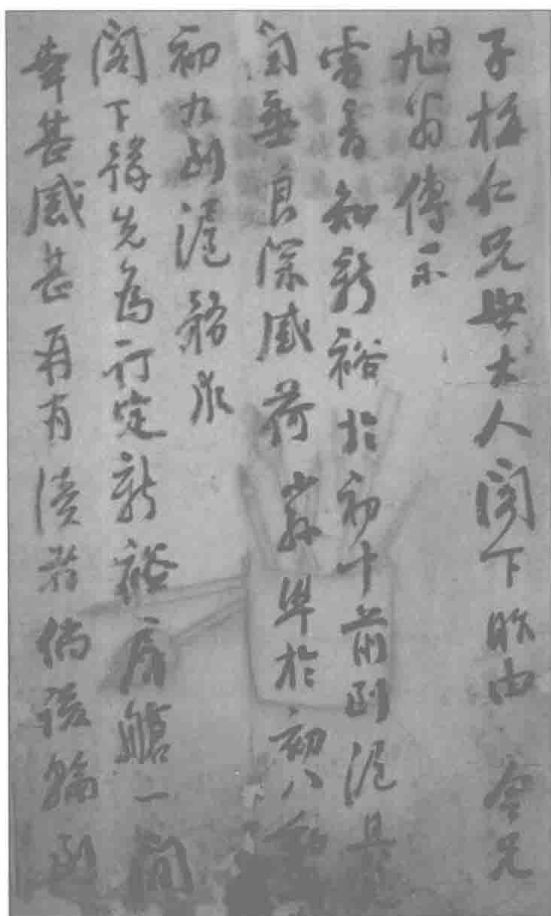 子梅仁兄大人閣下昨由 令兄
旭翁傳示
電音知新裕於初十前到滬具
關垂良深感荷 準於初八
初九到滬務求
閣下預先為訂定新裕房艙一間
幸甚感甚再有瀆者倘該輪到